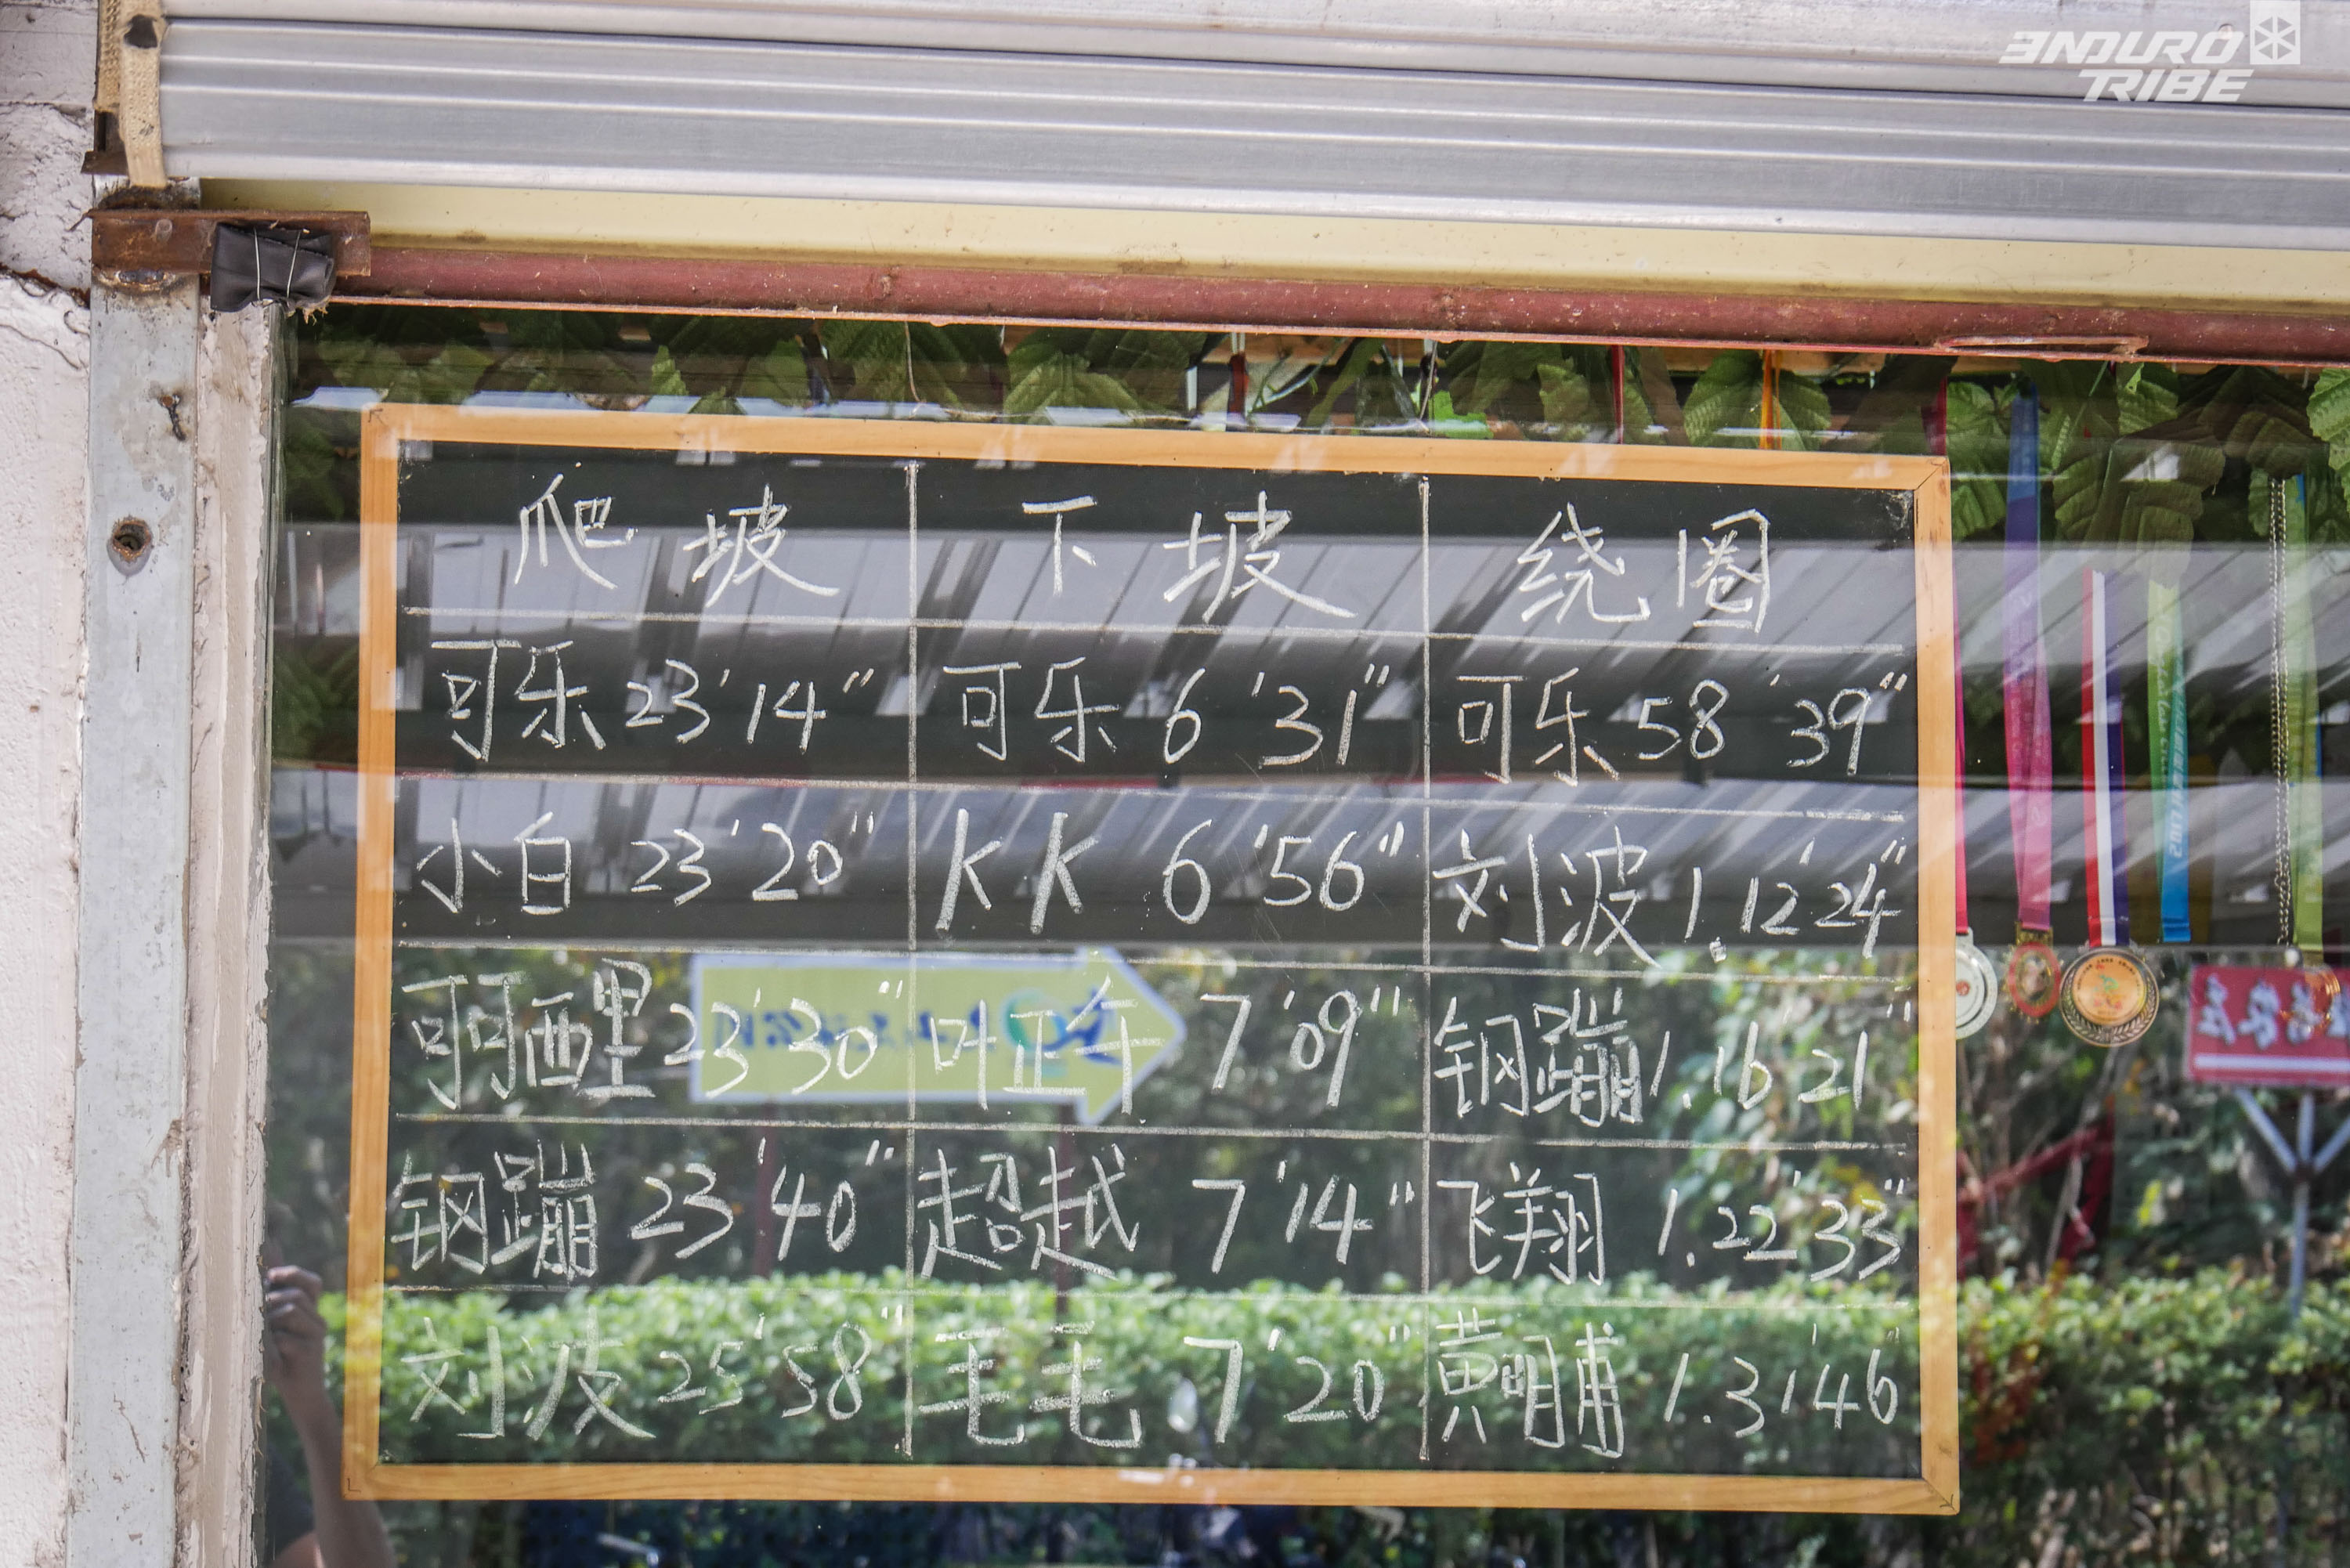 ENDURO
TRIBE
爬坡 下坡 绕圈
可乐 23'14" 可乐 6'31" 可乐 58'39"
小白 23'20" KK 6'56" 刘波 1.12'24"
可可西里 23'30" 叶正午 7'09" 钢蹦 1.16'21"
钢蹦 23'40" 超越 7'14" 飞翔 1.22'33"
刘波 25'58" 毛毛 7'20" 黄明甫 1.31'46"